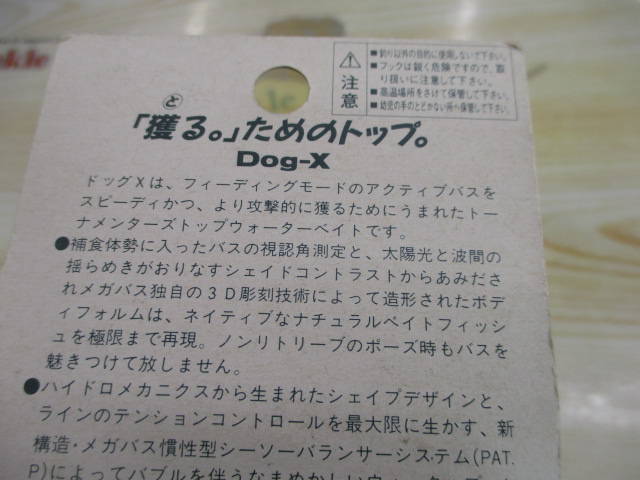 kle
⚠
注意
■釣り以外の目的に使用しないで下さい。
■フックは鋭く危険ですので、取
り扱いに注意して下さい。
■高温場所をさけて保管して下さい。
■幼児の手のとどかない所へ保管して下さい。
と
「獲る。」ためのトップ。
Dog-X
ドッグXは、フィーディングモードのアクティブバスを
スピーディかつ、より攻撃的に獲るためにうまれたトー
ナメンターズトップウォーターベイトです。
●補食体勢に入ったバスの視認角測定と、太陽光と波間の
揺らめきがおりなすシェイドコントラストからあみださ
れメガバス独自の3D彫刻技術によって造形されたボデ
ィフォルムは、ネイティブなナチュラルベイトフィッシ
ュを極限まで再現。ノンリトリーブのポーズ時もバスを
魅きつけて放しません。
●ハイドロメカニクスから生まれたシェイプデザインと、
ラインのテンションコントロールを最大限に生かす、新
構造・メガバス慣性型シーソーバランサーシステム(PAT.
P)によってバブルを伴うなまめかしいウォー